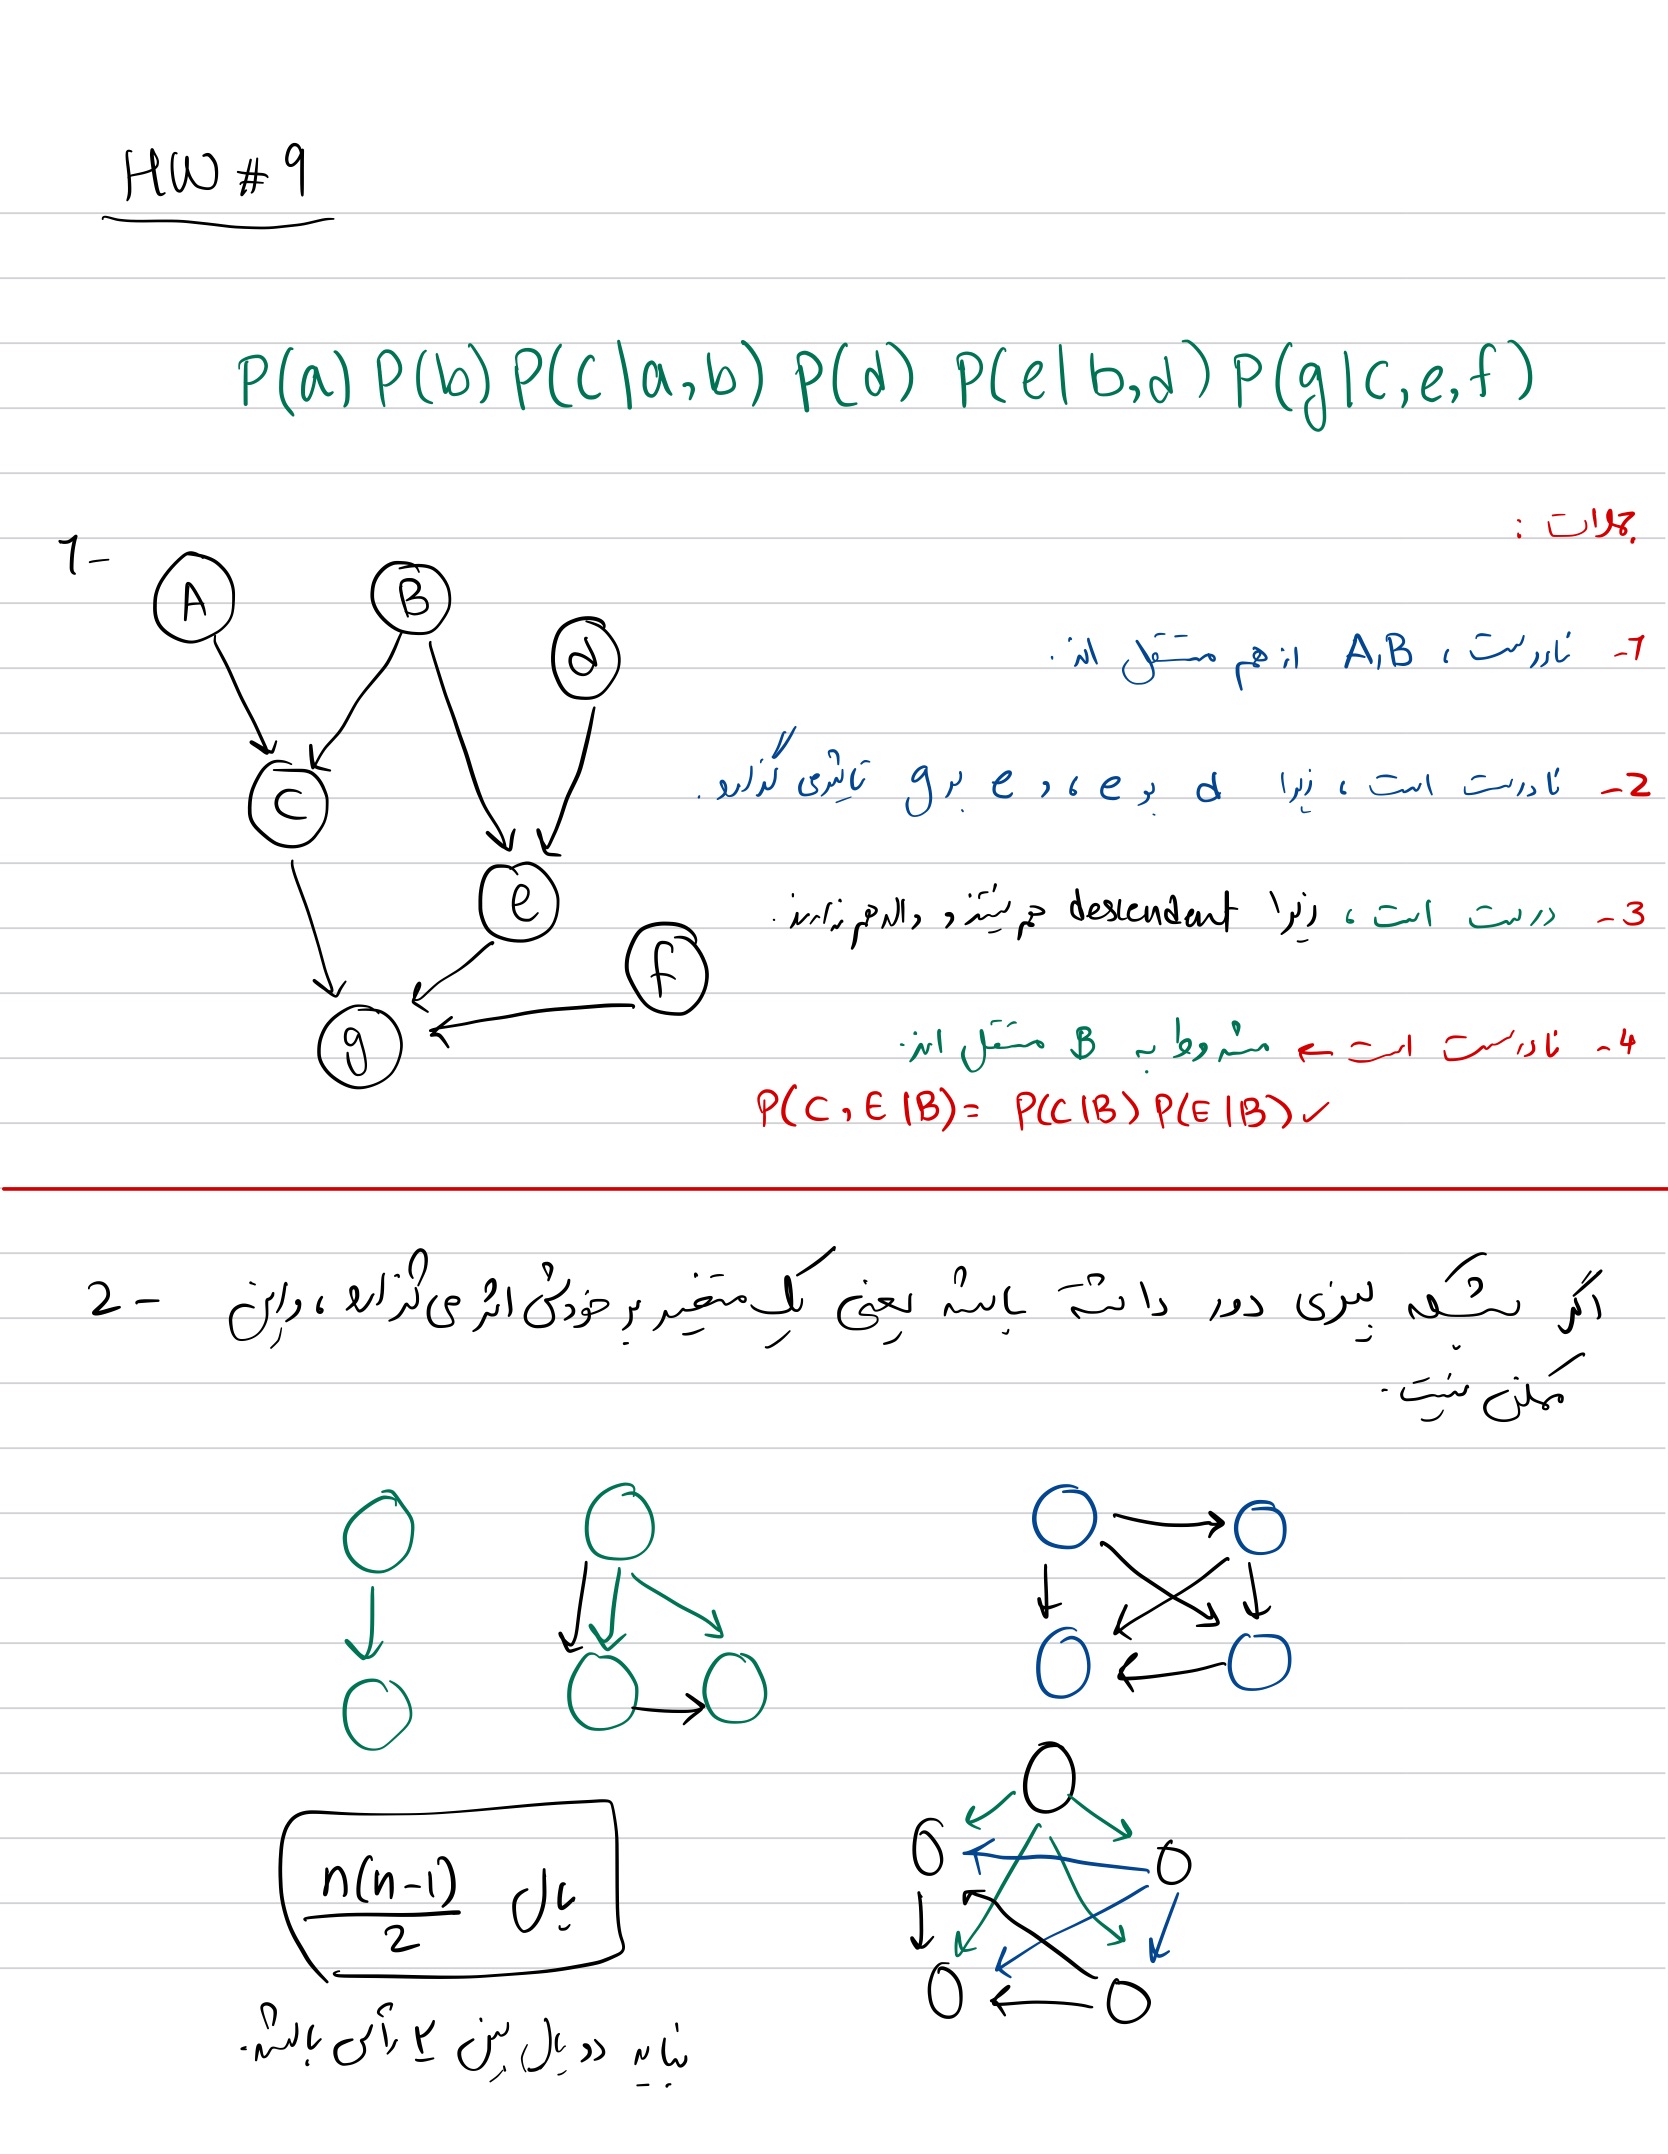 HW #9
P(a) P(b) P(C|a,b) P(d) P(e|b,d) P(g|c,e,f)
جملات :
1-
A
B
d
C
e
f
g
1- نادرست ، A,B از هم مستقل اند.
2- نادرست است ، زیرا d بر e ، و e بر g تاثیر می گذارد.
3- درست است ، زیرا descendent هم نیستند و والد هم ندارند.
4- نادرست است ← مشروط به B مستقل اند.
P(C,E|B) = P(C|B) P(E|B) ✓
2 - اگر شبکه بیزی دور داشته باشد یعنی یک متغیر بر خودش اثر می گذارد ، و این
ممکن نیست.
n(n-1)/2 یال
نباید دو یال بین ۲ رأس باشد.